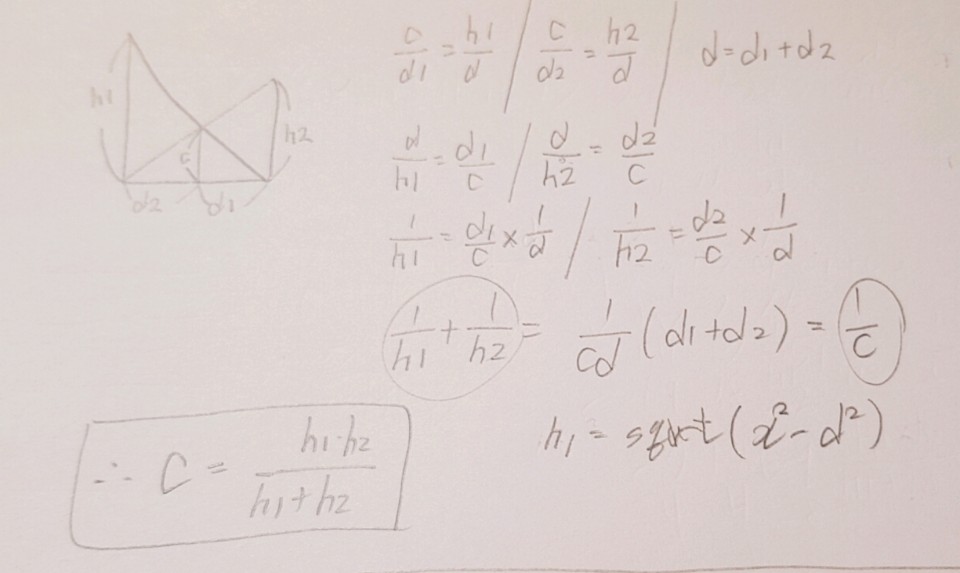 h1 c h2
d2 d1
c/d1 = h1/d / c/d2 = h2/d / d = d1 + d2
d/h1 = d1/c / d/h2 = d2/c
1/h1 = d1/c × 1/d / 1/h2 = d2/c × 1/d
1/h1 + 1/h2 = 1/cd (d1 + d2) = 1/c
h1 = sqrt(x² - d²)
∴ C = h1·h2/h1+h2